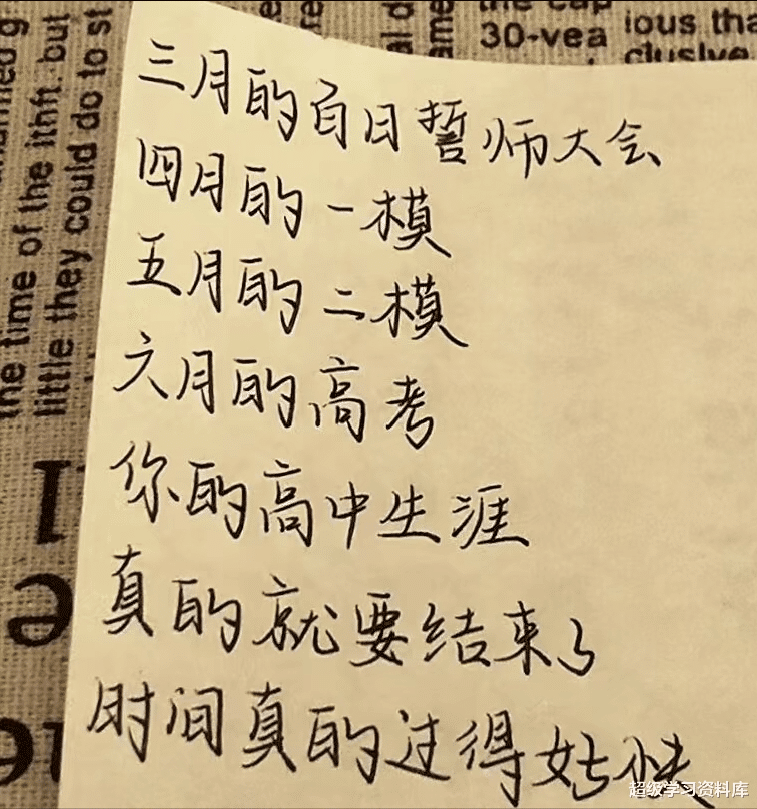 三月的百日誓师大会
四月的一模
五月的二模
六月的高考
你的高中生涯
真的就要结束了
时间真的过得好快
the time of the ithft. but
little they could do to st
30-yea
ious tha
clusive
超级学习资料库